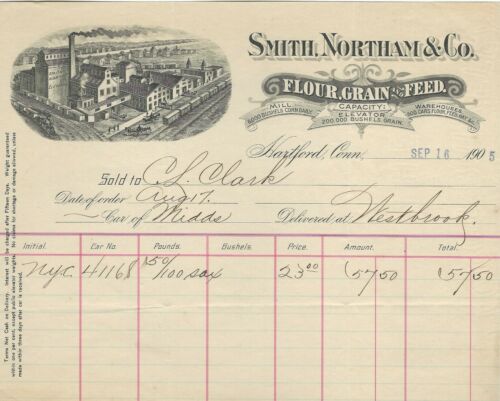 SMITH, NORTHAM & CO.
FLOUR, GRAIN AND FEED.
MILL
6000 BUSHELS CORN DAILY.
CAPACITY:
ELEVATOR
200,000 BUSHELS GRAIN.
WAREHOUSES
300 CARS FLOUR, FEED, HAY &c.
Hartford, Conn. SEP 16 1905
Sold to C. L. Clark
Date of order Aug 17.
Car of Midds Delivered at Westbrook.
Initial. Car No Pounds. Bushels. Price. Amount. Total.
N.Y.C. 41168 50/100 sax 23.00 57 50 57 50
Terms Net Cash on Delivery. Interest will be charged after Fifteen Days. Weight guaranteed
within one per cent, except public elevator weights. No claims for shortage or damage allowed, unless
made within three days after car is received.